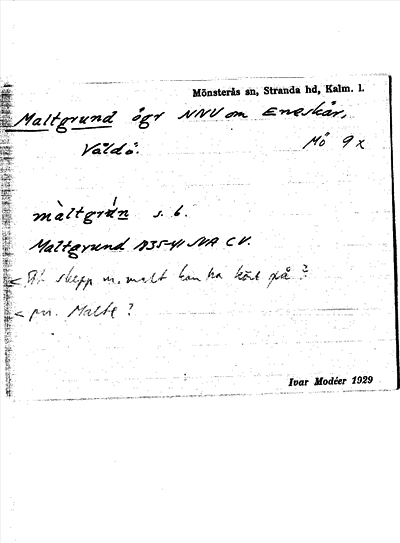 Mönsterås sn, Stranda hd, Kalm. l.
Maltgrund ögr NNV om Eneskär,
Våldö. Mö 9x
màltgrún s. b.
Maltgrund 1835-41 SVA CV.
< skepp m. malt kan ha kört på?
< pn. Malte?
Ivar Modéer 1929